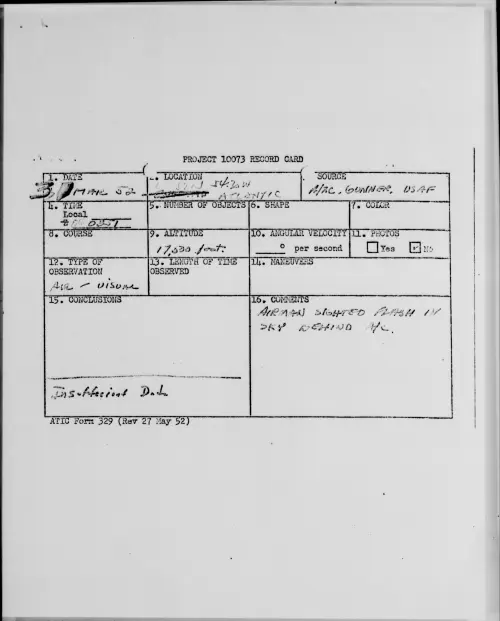 PROJECT 10073 RECORD CARD
1. DATE
MAR 52
2. LOCATION
ATLANTIC
SOURCE
A/AC, GUNNER, USAF
4. TIME
Local
0351
5. NUMBER OF OBJECTS
6. SHAPE
7. COLOR
8. COURSE
9. ALTITUDE
feet
10. ANGULAR VELOCITY
° per second
11. PHOTOS
Yes
No
12. TYPE OF
OBSERVATION
AIR - VISUAL
13. LENGTH OF TIME
OBSERVED
14. MANEUVERS
15. CONCLUSIONS
Insufficient Data
16. COMMENTS
AIRMAN SIGHTED FLASH IN
SKY BEHIND A/C.
ATIC Form 329 (Rev 27 May 52)